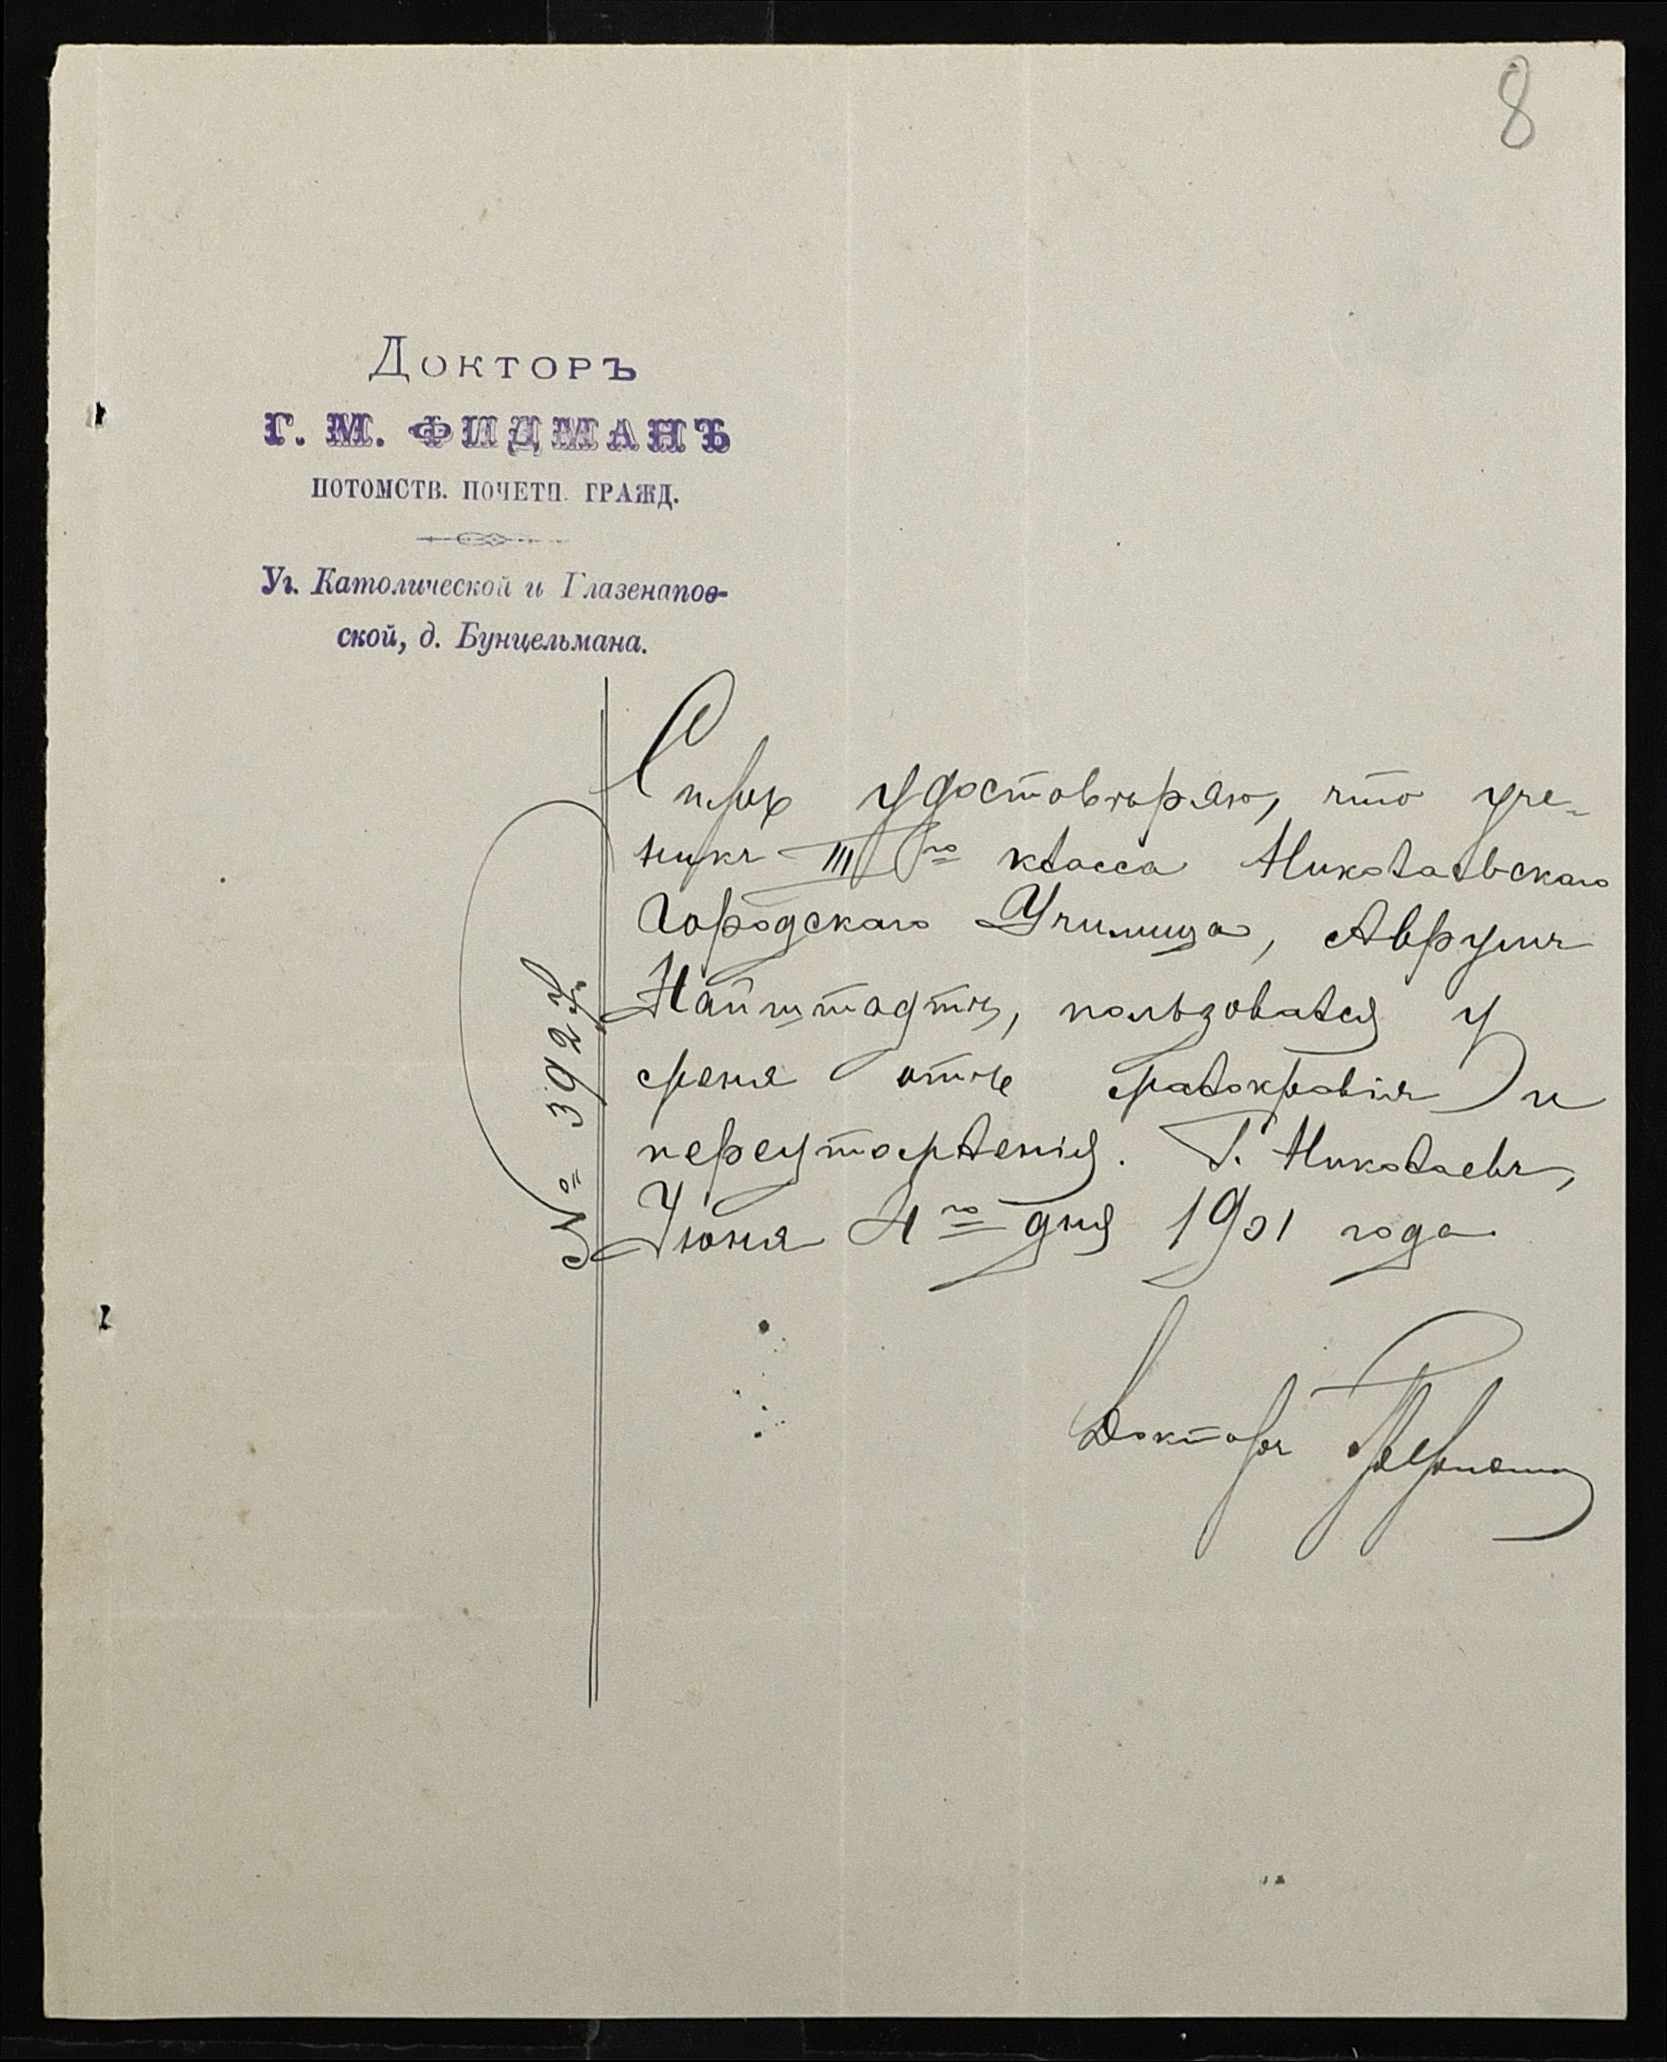 8
Докторъ
Г. М. ФИДМАНЪ
ПОТОМСТВ. ПОЧЕТН. ГРАЖД.
Уг. Католической и Глазенапов-
ской, д. Бунцельмана.
№ 392
Симъ удостовѣряю, что уче-
никъ III го класса Николаевскаго
Городскаго Училища, Аврумъ
Найштадтъ, пользовался у
меня отъ малокровія и
переутомленія. Г. Николаевъ,
Июня 4 го дня 1901 года
Докторъ